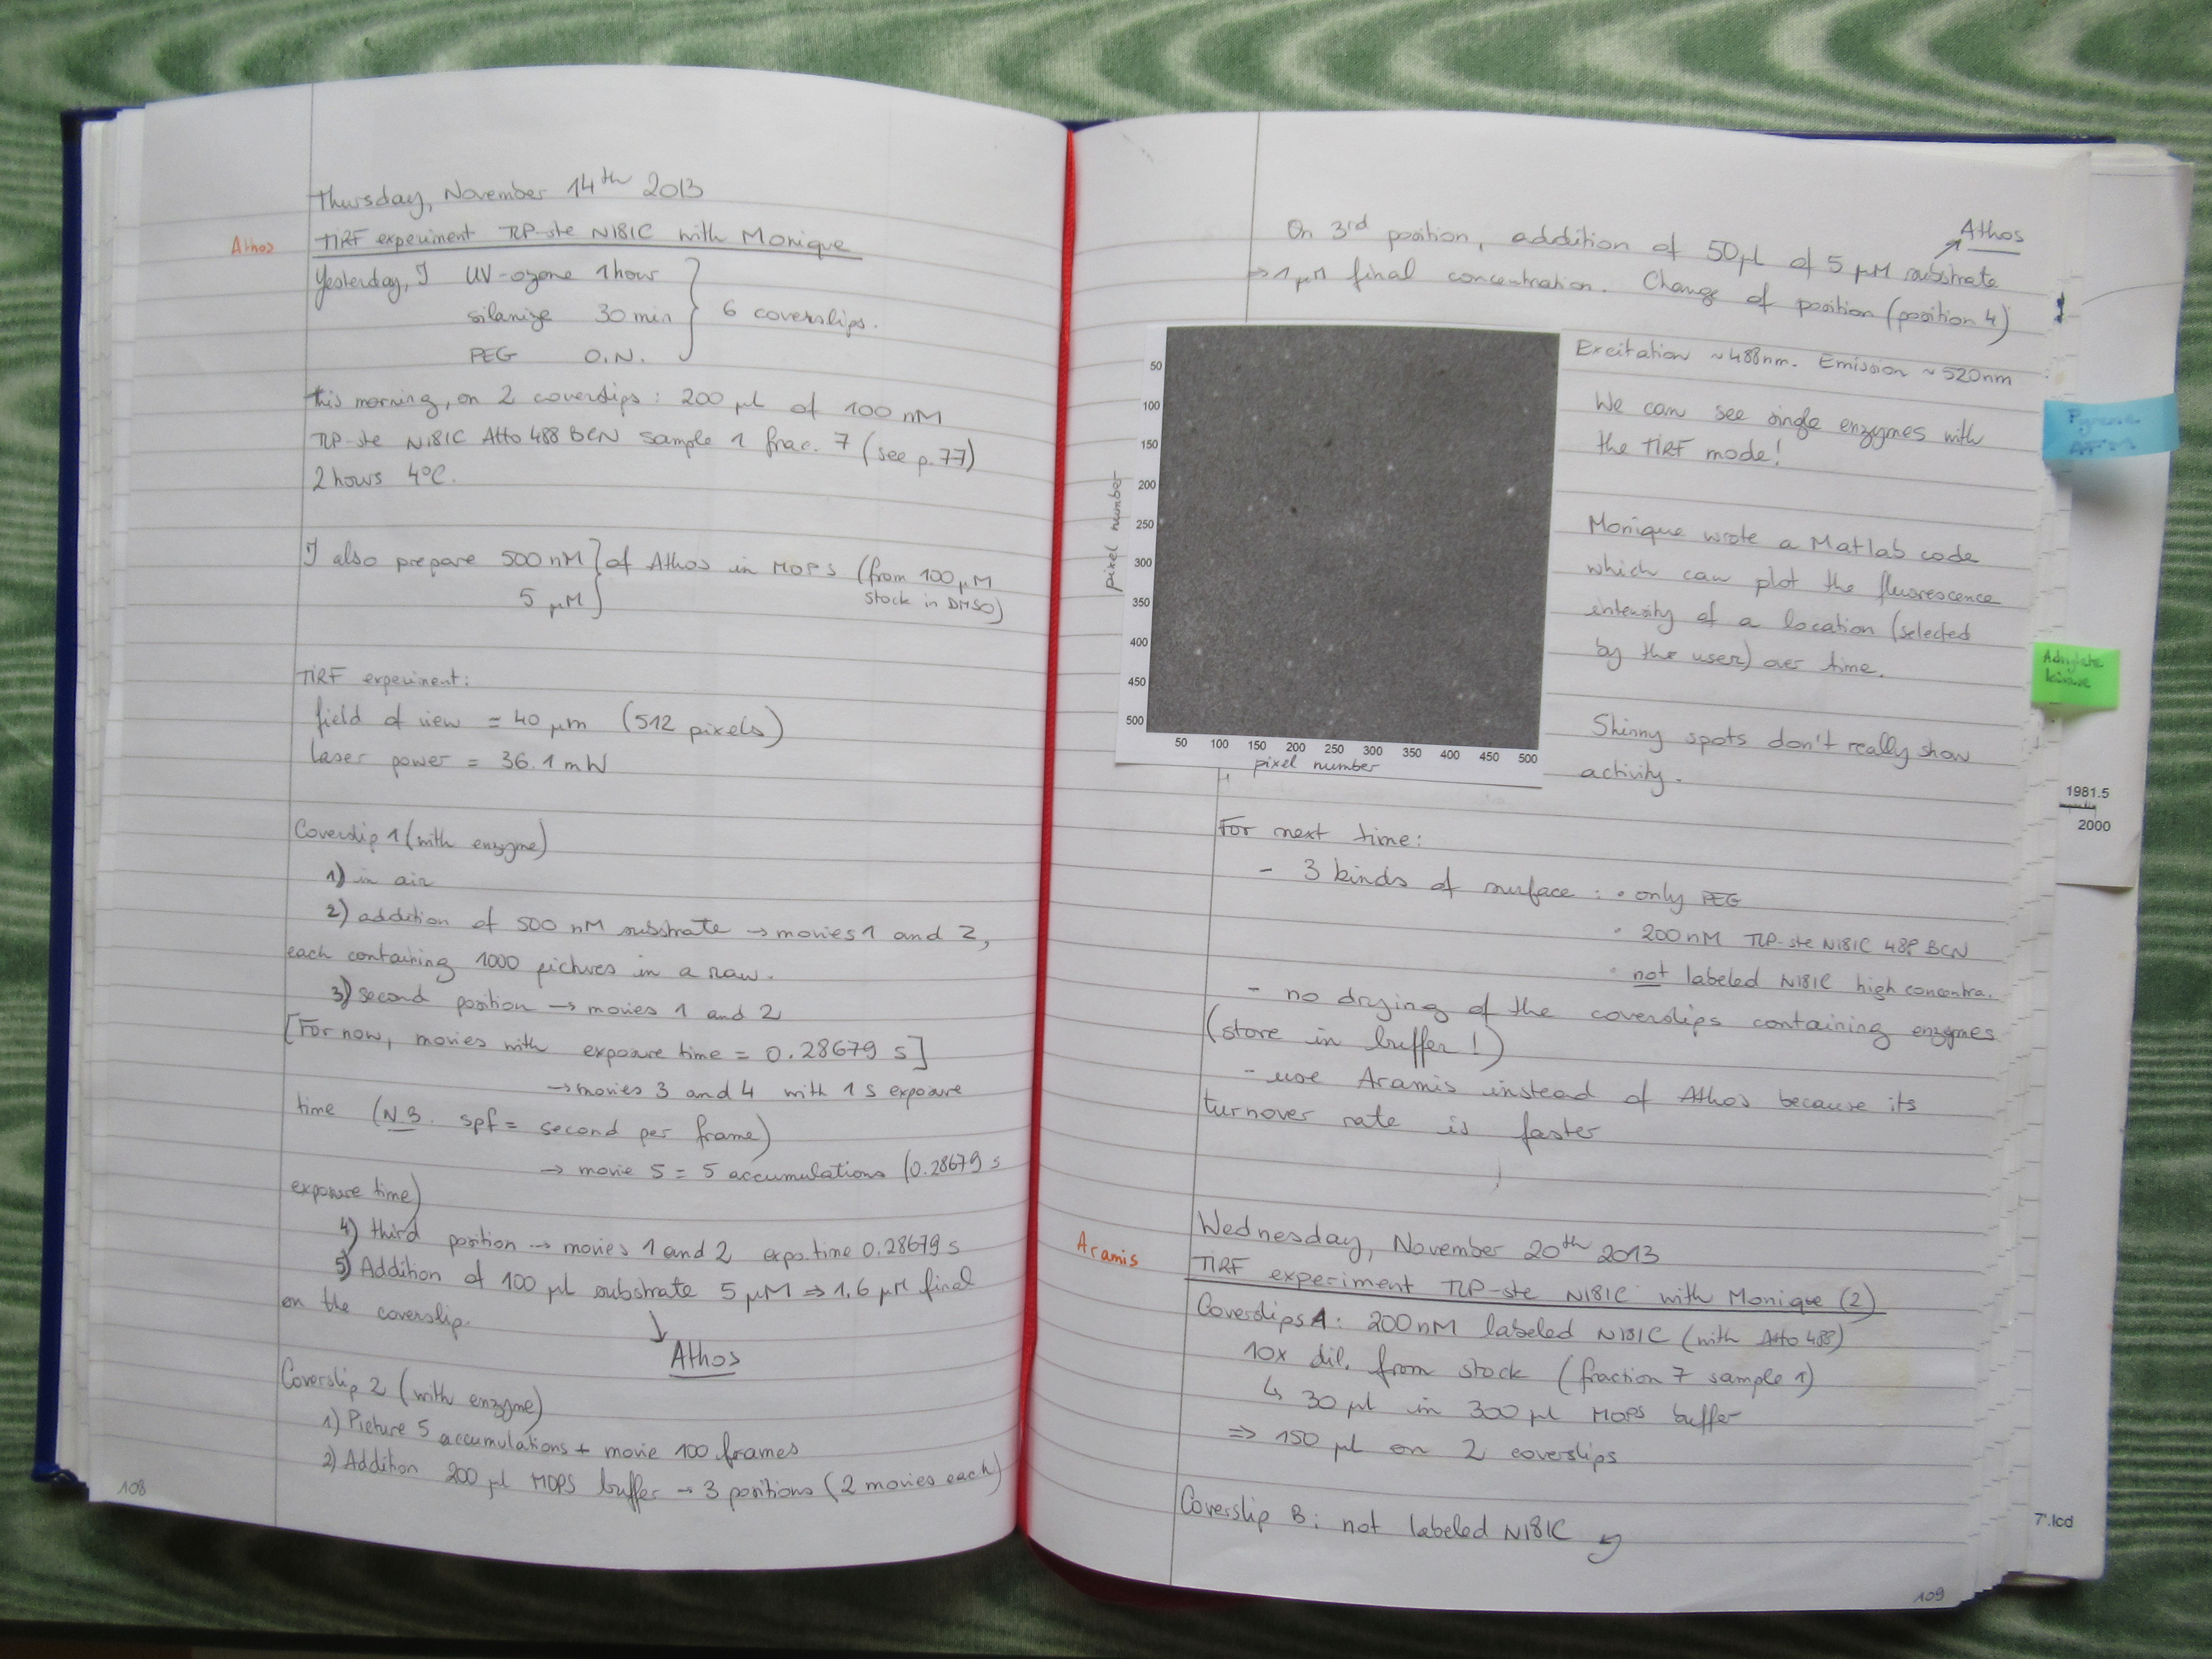 Thursday, November 14th 2013
Athos
TIRF experiment TLP-ste N181C with Monique
Yesterday, I UV-ozone 1 hour
silanize 30 min } 6 coverslips.
PEG O.N.
this morning, on 2 coverslips : 200 µl of 100 nM
TLP-ste N181C Atto 488 BCN sample 1 frac. 7 (see p.77)
2 hours 4°C.
I also prepare 500 nM } of Athos in MOPS (from 100 µM
5 µM } stock in DMSO)
TIRF experiment:
field of view = 40 µm (512 pixels)
laser power = 36.1 mW
Coverslip 1 (with enzyme)
1) in air
2) addition of 500 nM substrate → movies 1 and 2,
each containing 1000 pictures in a raw.
3) second position → movies 1 and 2
[For now, movies with exposure time = 0.28679 s]
→ movies 3 and 4 with 1 s exposure
time (N.B. spf = second per frame)
→ movie 5 = 5 accumulations (0.28679 s
exposure time)
4) third position → movies 1 and 2 expo. time 0.28679 s
5) Addition of 100 µl substrate 5 µM ⇒ 1.6 µM final
on the coverslip.
Athos
Coverslip 2 (with enzyme)
1) Picture 5 accumulations + movie 100 frames
2) Addition 200 µl MOPS buffer → 3 positions (2 movies each)
108
Athos
On 3rd position, addition of 50 µl of 5 µM substrate
⇒ 1 µM final concentration. Change of position (position 4)
50
100
150
200
250
300
350
400
450
500
pixel number
50 100 150 200 250 300 350 400 450 500
pixel number
Excitation ~ 488nm. Emission ~ 520nm
We can see single enzymes with
the TIRF mode!
Monique wrote a Matlab code
which can plot the fluorescence
intensity of a location (selected
by the user) over time.
Shinny spots don't really show
activity.
For next time:
- 3 kinds of surface : • only PEG
• 200 nM TLP-ste N181C 488 BCN
• not labeled N181C high concentra.
- no drying of the coverslips containing enzymes
(store in buffer!)
- use Aramis instead of Athos because its
turnover rate is faster
Wednesday, November 20th 2013
Aramis
TIRF experiment TLP-ste N181C with Monique (2)
Coverslips A: 200 nM labeled N181C (with Atto 488)
10x dil. from stock (fraction 7 sample 1)
↳ 30 µl in 300 µl MOPS buffer
⇒ 150 µl on 2 coverslips
Coverslip B: not labeled N181C
109
Adenylate
kinase
1981.5
2000
7'.lcd